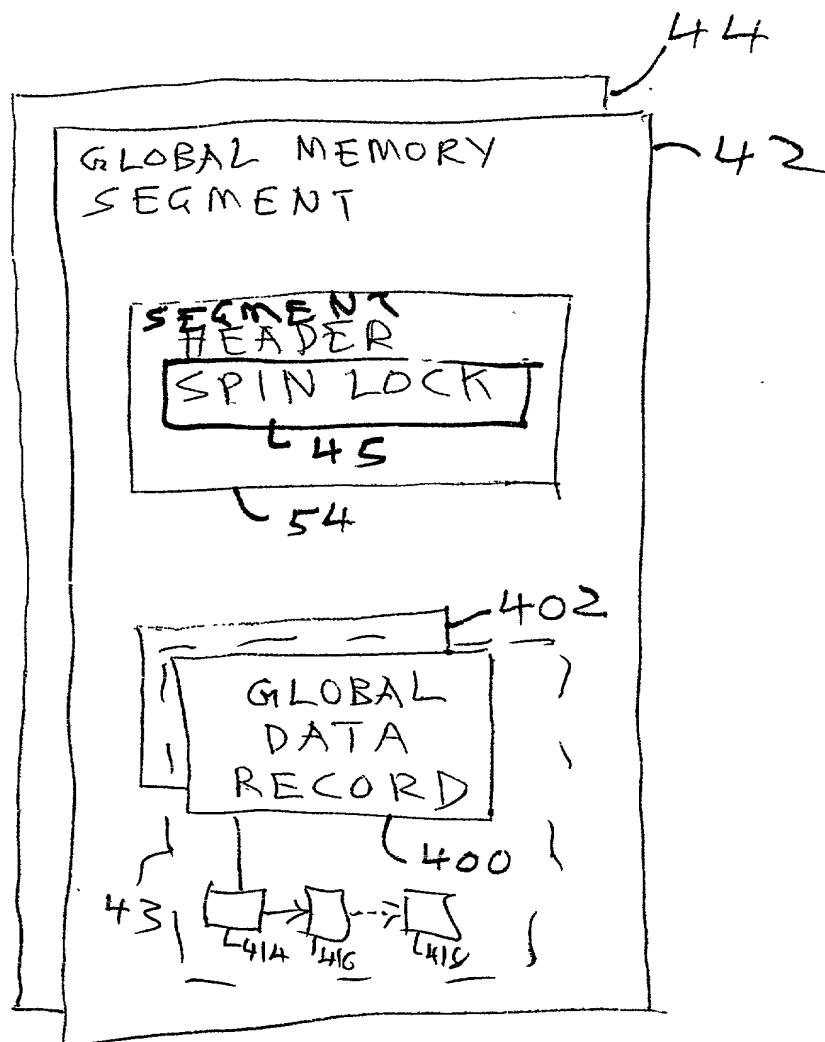 44
GLOBAL MEMORY
42
SEGMENT
SEGMENT
HEADER
SPIN LOCK
45
54
402
GLOBAL
DATA
RECORD
400
43
414 416 418